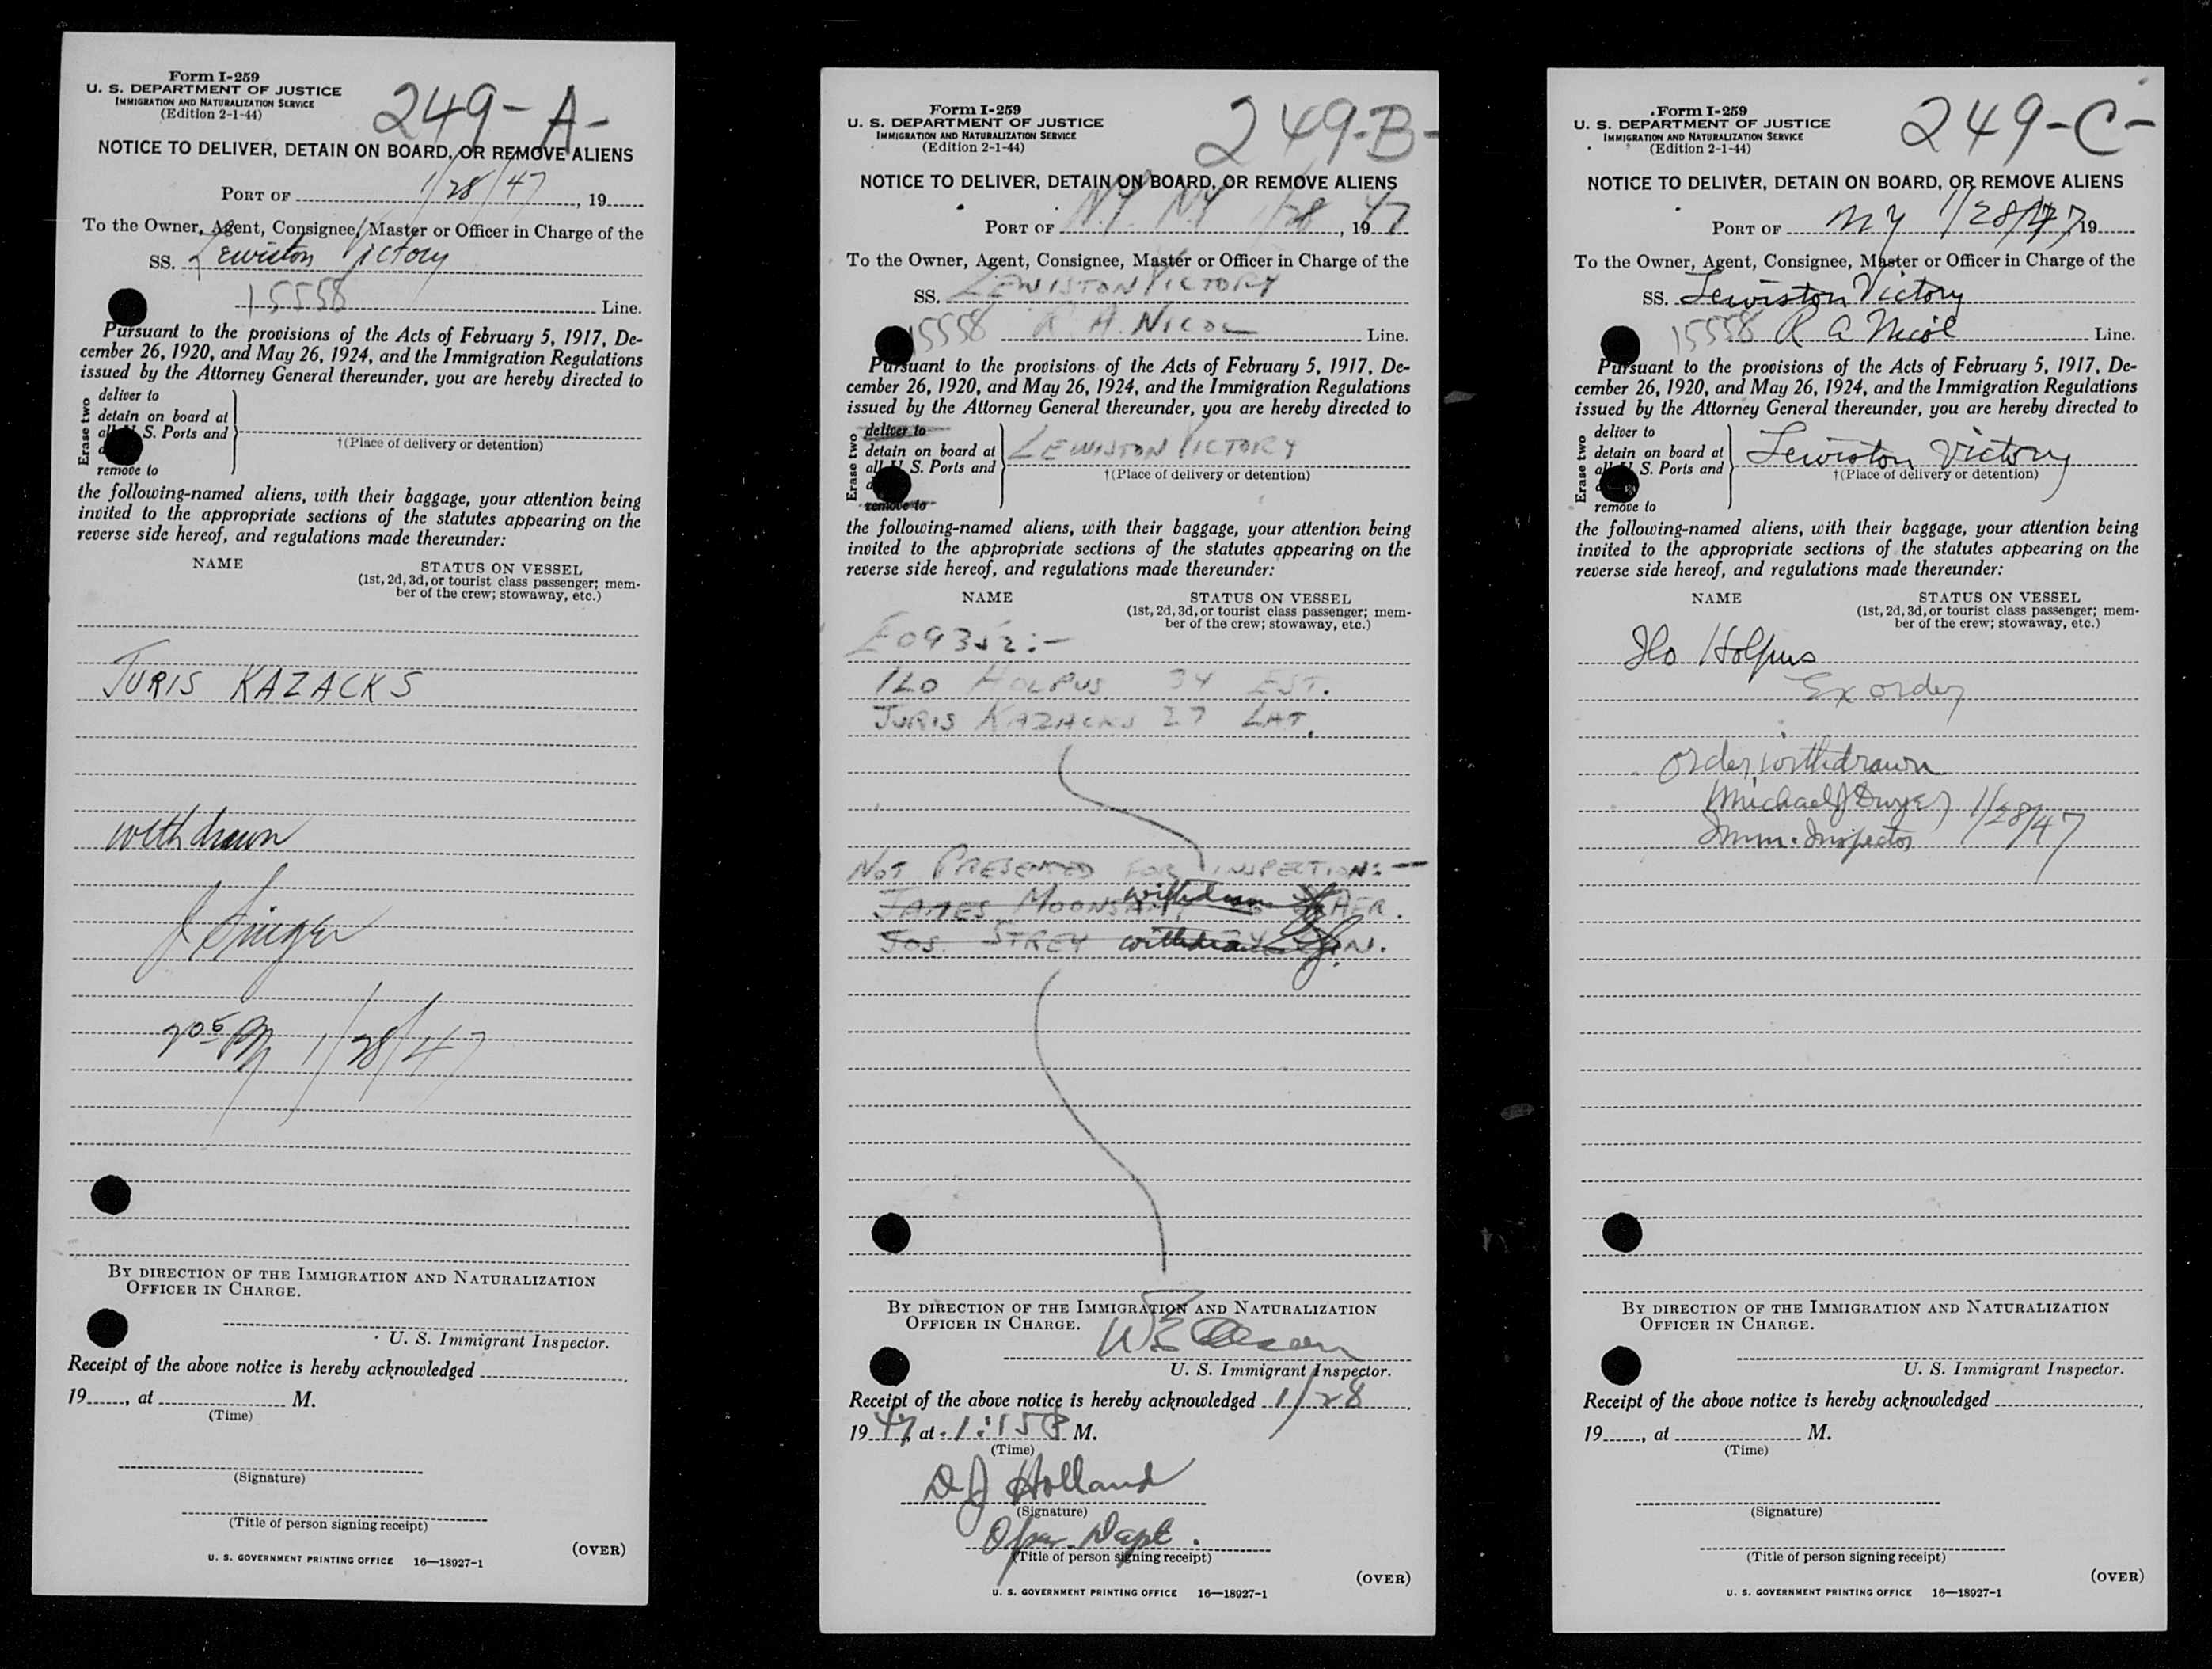 Form I-259
U. S. DEPARTMENT OF JUSTICE
IMMIGRATION AND NATURALIZATION SERVICE
(Edition 2-1-44)
249-A-
NOTICE TO DELIVER, DETAIN ON BOARD, OR REMOVE ALIENS
PORT OF 1/28/47, 19
To the Owner, Agent, Consignee, Master or Officer in Charge of the
SS. Lewiston Victory
15558 Line.
Pursuant to the provisions of the Acts of February 5, 1917, De-
cember 26, 1920, and May 26, 1924, and the Immigration Regulations
issued by the Attorney General thereunder, you are hereby directed to
Erase two
deliver to
detain on board at
all U. S. Ports and
remove to
†(Place of delivery or detention)
the following-named aliens, with their baggage, your attention being
invited to the appropriate sections of the statutes appearing on the
reverse side hereof, and regulations made thereunder:
NAME
STATUS ON VESSEL
(1st, 2d, 3d, or tourist class passenger; mem-
ber of the crew; stowaway, etc.)
JURIS KAZACKS
withdrawn
J Singer
205 PM 1/28/47
BY DIRECTION OF THE IMMIGRATION AND NATURALIZATION
OFFICER IN CHARGE.
U. S. Immigrant Inspector.
Receipt of the above notice is hereby acknowledged
19, at M.
(Time)
(Signature)
(Title of person signing receipt)
(OVER)
U. S. GOVERNMENT PRINTING OFFICE 16—18927-1
Form I-259
U. S. DEPARTMENT OF JUSTICE
IMMIGRATION AND NATURALIZATION SERVICE
(Edition 2-1-44)
249-B-
NOTICE TO DELIVER, DETAIN ON BOARD, OR REMOVE ALIENS
PORT OF N.Y. NY 1/28, 1947
To the Owner, Agent, Consignee, Master or Officer in Charge of the
SS. LEWISTON VICTORY
15558 R. A. NICOL Line.
Pursuant to the provisions of the Acts of February 5, 1917, De-
cember 26, 1920, and May 26, 1924, and the Immigration Regulations
issued by the Attorney General thereunder, you are hereby directed to
Erase two
deliver to
detain on board at
all U. S. Ports and
remove to
LEWISTON VICTORY
†(Place of delivery or detention)
the following-named aliens, with their baggage, your attention being
invited to the appropriate sections of the statutes appearing on the
reverse side hereof, and regulations made thereunder:
NAME
STATUS ON VESSEL
(1st, 2d, 3d, or tourist class passenger; mem-
ber of the crew; stowaway, etc.)
EO9352:-
ILO HOLPUS 34 EST.
JURIS KAZACKS 27 LAT.
NOT PRESENTED FOR INSPECTION:-
JAMES MOONSAMY withdrawn
JOS. STREY withdrawn
BY DIRECTION OF THE IMMIGRATION AND NATURALIZATION
OFFICER IN CHARGE.
U. S. Immigrant Inspector.
Receipt of the above notice is hereby acknowledged 1/28
1947, at 1:15 P M.
(Time)
D J Holland
(Signature)
Oper. Dept.
(Title of person signing receipt)
(OVER)
U. S. GOVERNMENT PRINTING OFFICE 16—18927-1
Form I-259
U. S. DEPARTMENT OF JUSTICE
IMMIGRATION AND NATURALIZATION SERVICE
(Edition 2-1-44)
249-C-
NOTICE TO DELIVER, DETAIN ON BOARD, OR REMOVE ALIENS
PORT OF NY 1/28/47, 19
To the Owner, Agent, Consignee, Master or Officer in Charge of the
SS. Lewiston Victory
15558 R A Nicol Line.
Pursuant to the provisions of the Acts of February 5, 1917, De-
cember 26, 1920, and May 26, 1924, and the Immigration Regulations
issued by the Attorney General thereunder, you are hereby directed to
Erase two
deliver to
detain on board at
all U. S. Ports and
remove to
Lewiston Victory
†(Place of delivery or detention)
the following-named aliens, with their baggage, your attention being
invited to the appropriate sections of the statutes appearing on the
reverse side hereof, and regulations made thereunder:
NAME
STATUS ON VESSEL
(1st, 2d, 3d, or tourist class passenger; mem-
ber of the crew; stowaway, etc.)
Ilo Holpus
Ex order
Order withdrawn
Michael J Dwyer 1/28/47
Imm. Inspector
BY DIRECTION OF THE IMMIGRATION AND NATURALIZATION
OFFICER IN CHARGE.
U. S. Immigrant Inspector.
Receipt of the above notice is hereby acknowledged
19, at M.
(Time)
(Signature)
(Title of person signing receipt)
(OVER)
U. S. GOVERNMENT PRINTING OFFICE 16—18927-1